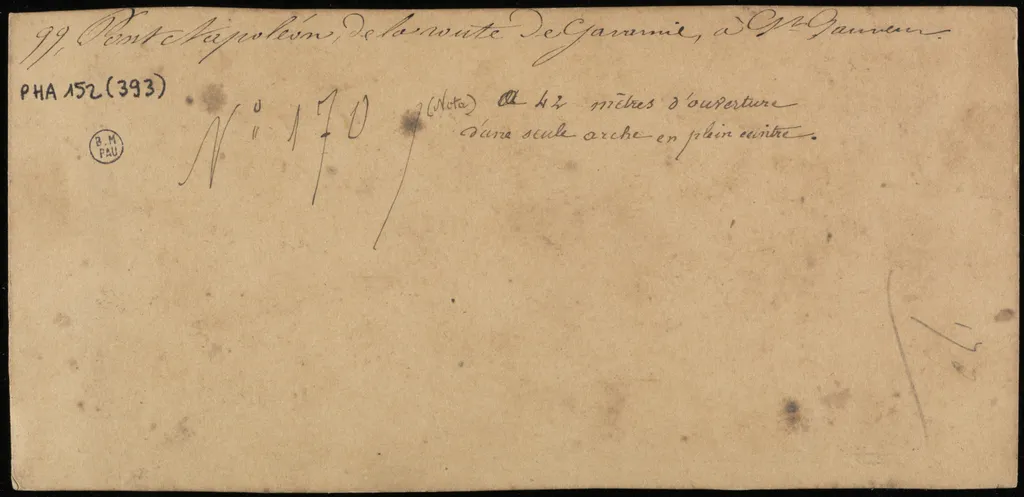 99, Pont Napoléon, de la route de Gavarnie, à St Sauveur.
PHA 152 (393)
B.M
PAU
N° 170
(Nota) a 42 mètres d'ouverture
d'une seule arche en plein ceintre.